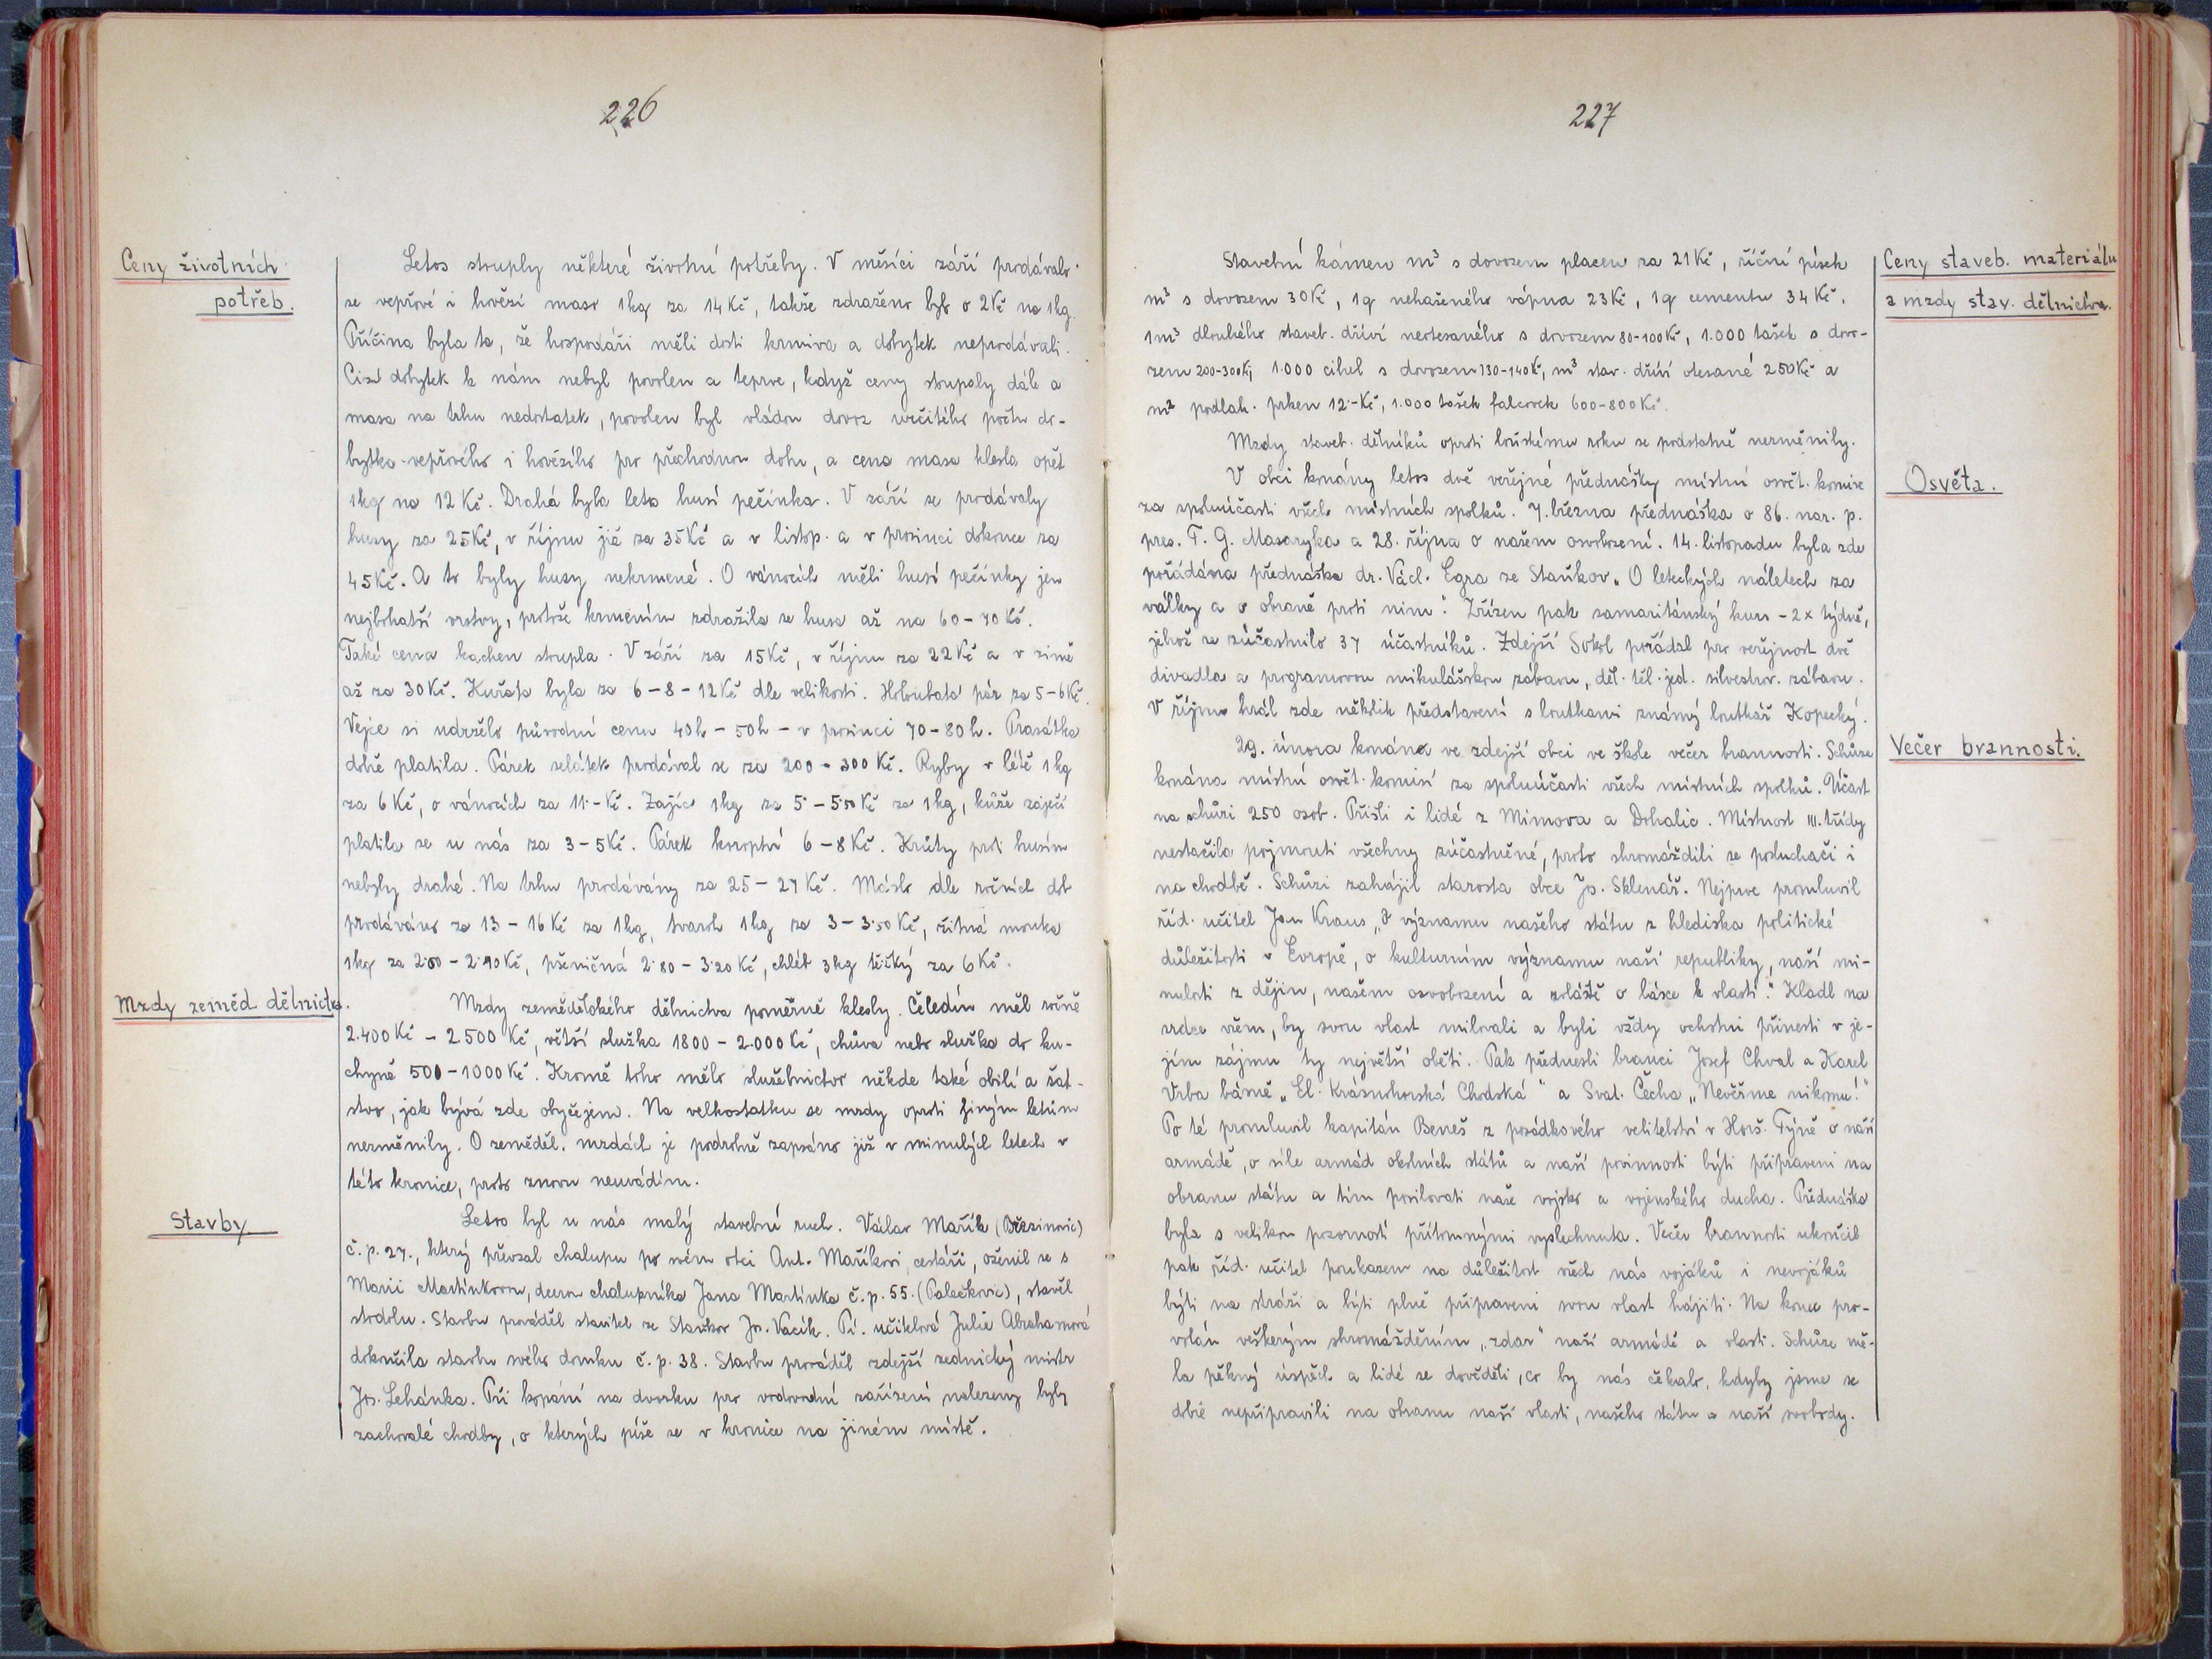 226
Ceny životních
potřeb.
Letos stouply některé životní potřeby. V měsíci září prodávalo
se vepřové i hovězí maso 1kg za 14 Kč, takže zdraženo bylo o 2Kč na 1kg.
Příčina byla ta, že hospodáři měli dosti krmiva a dobytek neprodávali.
Cizí dobytek k nám nebyl povolen a teprve, když ceny stoupaly dále a
masa na trhu nedostatek, povolen byl vládou dovoz určitého počtu do-
bytka-vepřového i hovězího pro přechodnou dobu, a cena masa klesla opět
1kg na 12 Kč. Drahá byla letos husí pečínka. V září se prodávaly
husy za 25Kč, v říjnu již za 35Kč a v listop. a v prosinci dokonce za
45Kč. A to byly husy nekrmené. O vánocích měli husí pečínky jen
nejbohatší vrstvy, protože krmením zdražila se husa až na 60-70 Kč.
Také cena kachen stoupla. V září za 15Kč, v říjnu za 22Kč a v zimě
až za 30Kč. Kuřata byla za 6-8-12Kč dle velikosti. Holoubata pár za 5-6Kč.
Vejce si udrželo původní cenu 40h-50h-v prosinci 70-80h. Prasátka
dobře platila. Párek selátek prodával se za 200-300 Kč. Ryby v létě 1kg
za 6Kč, o vánocích za 11·-Kč. Zajíc 1kg za 5·-5·50Kč za 1kg, kůže zaječí
platila se u nás za 3-5Kč. Párek koroptví 6-8Kč. Krůty proti husím
nebyly drahé. Na trhu prodávány za 25-27Kč. Máslo dle ročních dob
prodáváno za 13-16Kč za 1kg, tvaroh 1kg za 3-3·50Kč, žitná mouka
1kg za 2·50-2·90Kč, pšeničná 2·80-3·20Kč, chléb 3kg těžký za 6Kč.
Mzdy zeměd. dělnictva.
Mzdy zemědělského dělnictva poměrně klesly. Čeledín měl ročně
2.400Kč-2.500Kč, větší služka 1800-2.000Kč, chůva nebo služka do ku-
chyně 500-1000Kč. Kromě toho mělo služebnictvo někde také obilí a šat-
stvo, jak bývá zde obyčejem. Na velkostatku se mzdy oproti jiným letům
nezměnily. O zeměděl. mzdách je podrobně zapsáno již v minulých letech v
této kronice, proto znovu neuvádím.
Stavby
Letos byl u nás malý stavební ruch. Václav Mařík (Březinovic)
č.p.27., který převzal chalupu po svém otci Ant. Maříkovi, cestáři, oženil se s
Marií Martínkovou, dcerou chalupníka Jana Martínka č.p.55.(Palečkovic), stavěl
stodolu. Stavbu prováděl stavitel ze Staňkov Jos. Vacík. Pí. učitelová Julie Abrahamová
dokončila stavbu svého domku č.p.38. Stavbu prováděl zdejší zednický mistr
Jos. Lehánka. Při kopání na dvorku pro vodovodní zařízení nalezeny byly
zachovalé chodby, o kterých píše se v kronice na jiném místě.
227
Ceny staveb. materiálu
a mzdy stav. dělnictva.
Stavební kámen m³ s dovozem placen za 21Kč, říční písek
m³ s dovozem 30Kč, 1q nehašeného vápna 23Kč, 1q cementu 34Kč,
1m³ dlouhého staveb. dříví neotesaného s dovozem 80-100Kč, 1.000 tašek s dovo-
zem 200-300Kč, 1.000 cihel s dovozem 130-140Kč, m³ stav. dříví otesané 250Kč a
m² podlah. prken 12·-Kč, 1.000 tašek falcovek 600-800Kč.
Mzdy staveb. dělníků oproti loňskému roku se podstatně nezměnily.
Osvěta.
V obci konány letos dvě veřejné přednášky místní osvět. komise
za spoluúčasti všech místních spolků. 7. března přednáška o 86. nar. p.
pres. T. G. Masaryka a 28. října o našem osvobození. 14. listopadu byla zde
pořádána přednáška dr. Václ. Egra ze Staňkov „O leteckých náletech za
války a o obraně proti nim“. Zřízen pak samaritánský kurs - 2x týdně,
jehož se zúčastnilo 37 účastníků. Zdejší Sokol pořádal pro veřejnost dvě
divadla a programovou mikulášskou zábavu, děl. těl. jed. silvestrov. zábavu.
V říjnu hrál zde několik představení s loutkami známý loutkář Kopecký.
Večer brannosti.
29. února konána ve zdejší obci ve škole večer brannosti. Schůze
konána místní osvět. komisí za spoluúčasti všech místních spolků. Účast
na schůzi 250 osob. Přišli i lidé z Mimova a Dohalic. Místnost III. třídy
nestačila pojmouti všechny zúčastněné, proto shromáždili se posluchači i
na chodbě. Schůzi zahájil starosta obce Jos. Sklenář. Nejprve promluvil
říd. učitel Jan Kraus „O významu našeho státu z hlediska politické
důležitosti v Evropě, o kulturním významu naší republiky, naší mi-
nulosti z dějin, našem osvobození a zvláště o lásce k vlasti“. Kladl na
srdce všem, by svou vlast milovali a byli vždy ochotni přinesti v je-
jím zájmu ty největší oběti. Pak přednesli branci Josef Chval a Karel
Vrba básně „El. Krásnohorská Chodská“ a Svat. Čecha „Nevěřme nikomu!“
Po té promluvil kapitán Beneš z posádkového velitelství v Horš. Týně o naší
armádě, o síle armád okolních států a naší povinnosti býti připraveni na
obranu státu a tím posilovati naše vojsko a vojenského ducha. Přednáška
byla s velikou pozorností přítomnými vyslechnuta. Večer brannosti ukončil
pak říd. učitel poukazem na důležitost všech nás vojáků i nevojáků
býti na stráži a býti plně připraveni svou vlast hájiti. Na konec pro-
voláno veškerým shromážděním „zdar“ naší armádě a vlasti. Schůze mě-
la pěkný úspěch a lidé se dověděli, co by nás čekalo, kdyby jsme se
dobře nepřipravili na obranu naší vlasti, našeho státu a naší svobody.